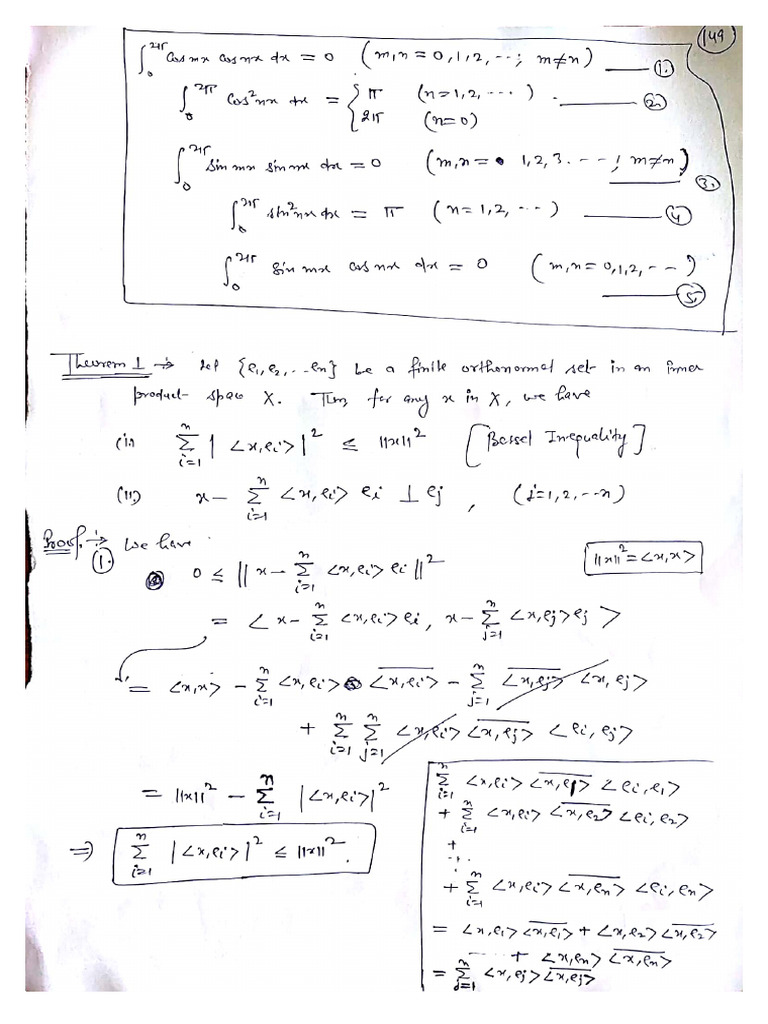 149
∫₀^{2π} cos mx cos nx dx = 0 (m,n = 0,1,2, --; m≠n) —— 1.
∫₀^{2π} cos²nx dx = { π (n=1,2, ---) —— 2.
2π (n=0)
∫₀^{2π} sin mx sin nx dx = 0 (m,n = 1,2,3. ---; m≠n) —— 3.
∫₀^{2π} sin²nx dx = π (n=1,2, ---) —— 4
∫₀^{2π} sin mx cos nx dx = 0 (m,n = 0,1,2, --)
—— 5.
Theorem 1 → let {e₁,e₂,..en} be a finite orthonormal set in an inner
product space X. Then for any x in X, we have
(i) Σ_{i=1}^{n} |<x,ei>|² ≤ ||x||² [Bessel Inequality]
(ii) x - Σ_{i=1}^{n} <x,ei> ei ⊥ ej , (j=1,2,--n)
Proof. → We have
1. 0 ≤ ||x - Σ_{i=1}^{n} <x,ei> ei||² ||x||² = <x,x>
= <x - Σ_{i=1}^{n} <x,ei> ei, x - Σ_{j=1}^{n} <x,ej> ej>
= <x,x> - Σ_{i=1}^{n} <x,ei> \overline{<x,ei>} - Σ_{j=1}^{n} \overline{<x,ej>} <x,ej>
+ Σ_{i=1}^{n} Σ_{j=1}^{n} <x,ei> \overline{<x,ej>} <ei,ej>
= ||x||² - Σ_{i=1}^{n} |<x,ei>|²
⇒ Σ_{i=1}^{n} |<x,ei>|² ≤ ||x||².
Σ_{i=1}^{n} <x,ei> \overline{<x,e₁>} <ei,e₁>
+ Σ_{i=1}^{n} <x,ei> \overline{<x,e₂>} <ei,e₂>
+
...
+ Σ_{i=1}^{n} <x,ei> \overline{<x,en>} <ei,en>
= <x,e₁> \overline{<x,e₁>} + <x,e₂> \overline{<x,e₂>}
--- + <x,en> \overline{<x,en>}
= Σ_{j=1}^{n} <x,ej> \overline{<x,ej>}